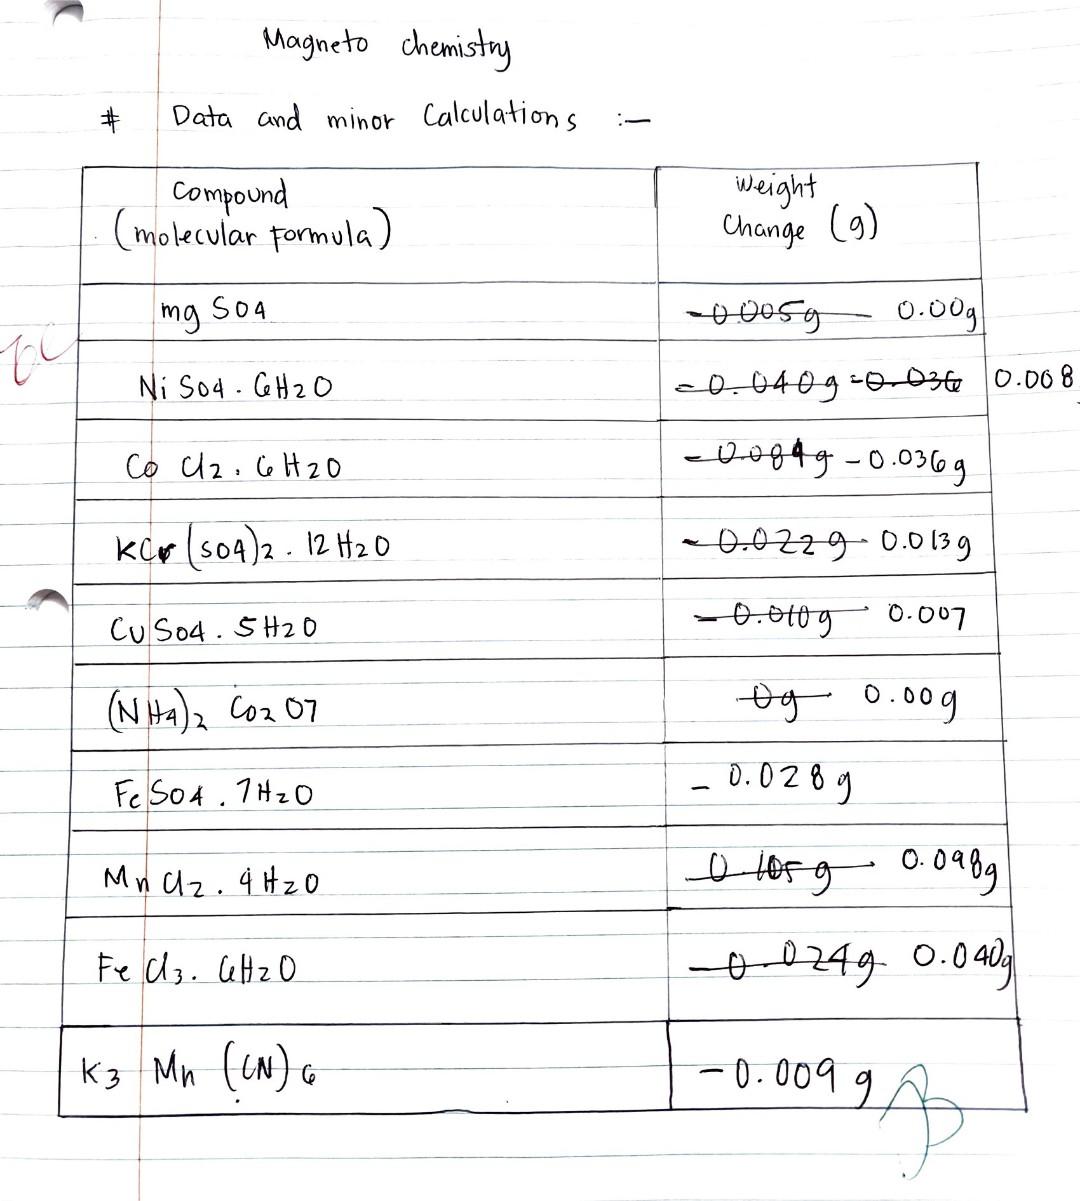 Magneto chemistry
# Data and minor Calculations :-
Compound
(molecular formula)
Weight
Change (g)
mg SO4
-0.005g 0.00g
Ni SO4 . 6H2O
-0.040g -0.036 0.008
Co Cl2 . 6H2O
-0.084g -0.036g
KCr(SO4)2 . 12H2O
-0.022g 0.013g
CuSO4 . 5H2O
-0.010g 0.007
(NH4)2 Co2O7
0g 0.00g
FeSO4 . 7H2O
-0.028g
MnCl2 . 4H2O
0.105g 0.098g
FeCl3 . 6H2O
-0.024g 0.040g
K3 Mn (CN)6
-0.009g